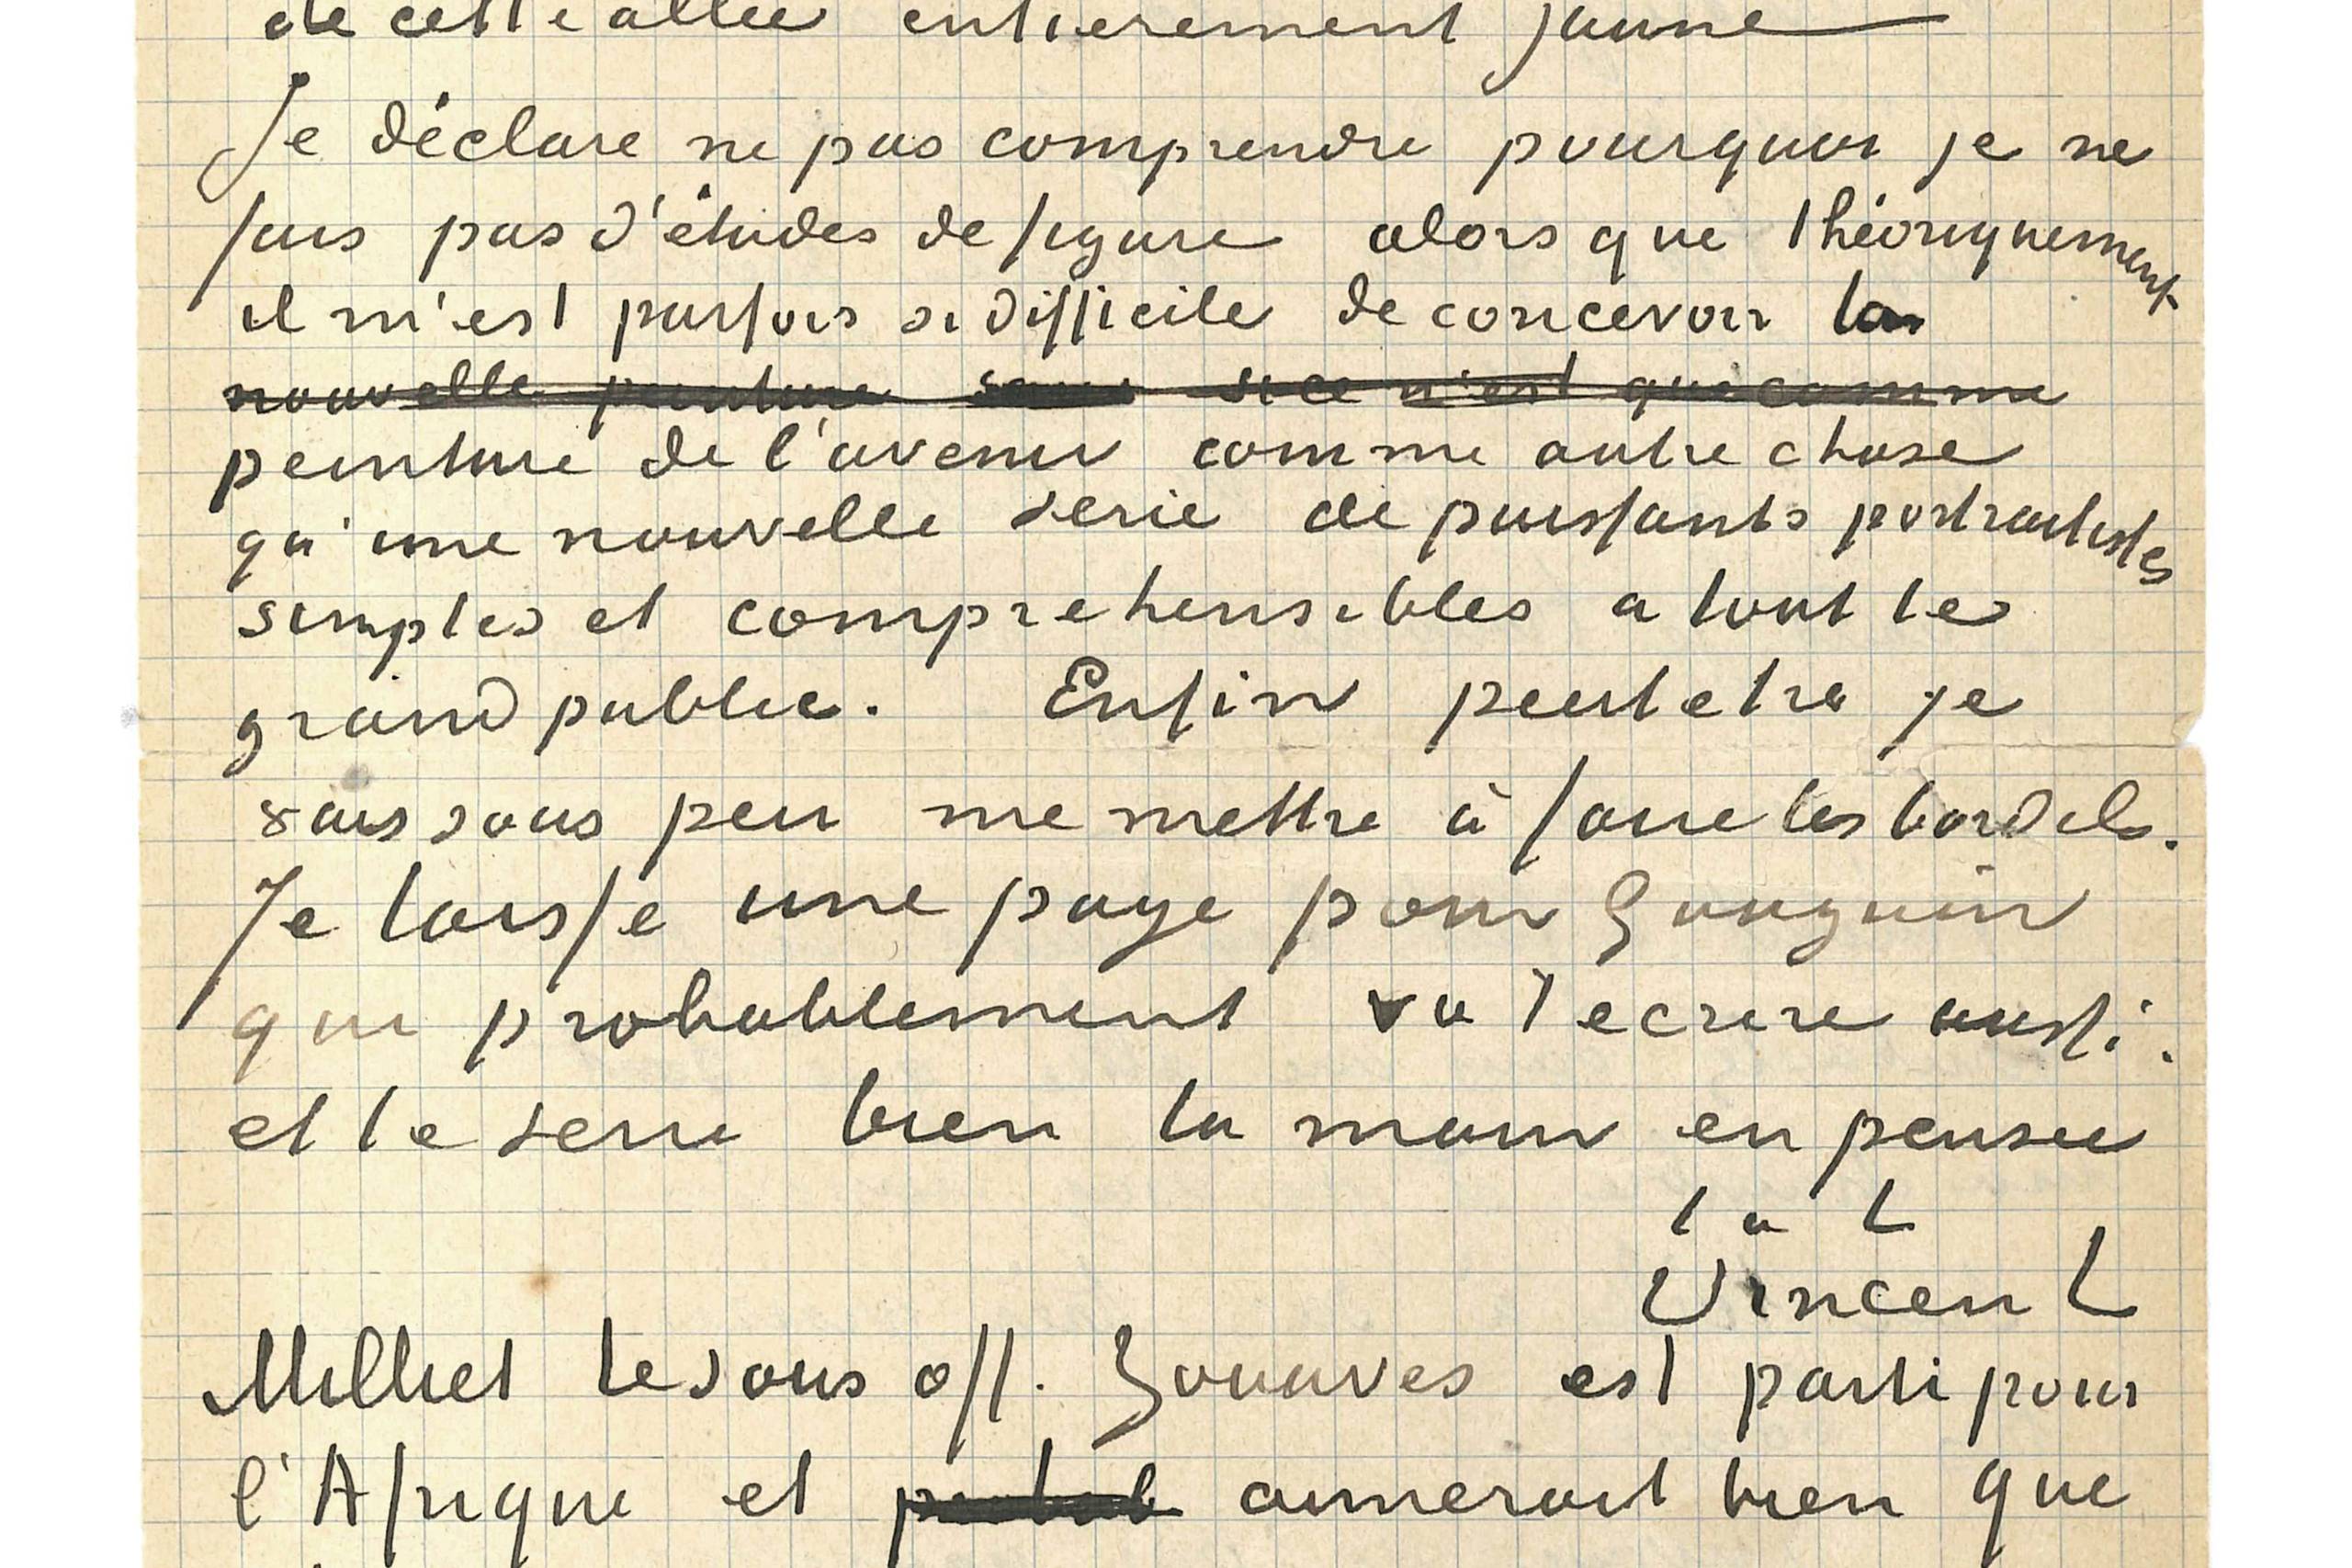 de cette allée entierement jaune
Je déclare ne pas comprendre pourquoi je ne
fais pas d'études de figure alors que théoriquement
il m'est parfois si difficile de concevoir la
nouvelle peinture sans si ce n'est que comme
peinture de l'avenir comme autre chose
qu'une nouvelle serie de puissants portraitistes
simples et comprehensibles a tout le
grand public. Enfin peut etre je
vais sous peu me mettre à faire les bordels.
Je laisse une page pour Gauguin
qui probablement va t'ecrire aussi.
et te serre bien la main en pensee
t à t
Vincent
Milliet le sous off. Zouaves est parti pour
l'Afrique et aimerait bien que